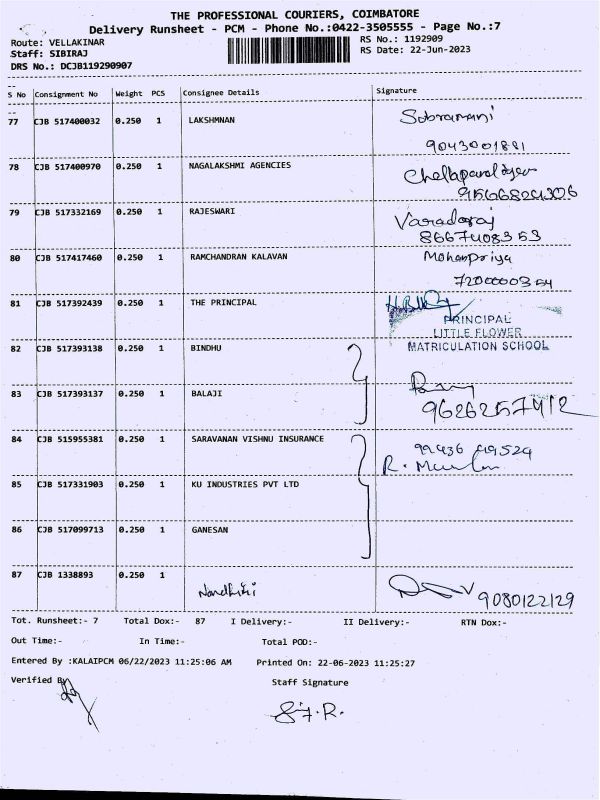 THE PROFESSIONAL COURIERS, COIMBATORE
Delivery Runsheet - PCM - Phone No.:0422-3505555 - Page No.:7
Route: VELLAKINAR RS No.: 1192909
Staff: SIBIRAJ RS Date: 22-Jun-2023
DRS No.: DCJB119290907
S No Consignment No Weight PCS Consignee Details Signature
77 CJB 517400032 0.250 1 LAKSHMNAN Sobramani
9043001881
78 CJB 517400970 0.250 1 NAGALAKSHMI AGENCIES
79 CJB 517332169 0.250 1 RAJESWARI Varadaraj
8667408353
80 CJB 517417460 0.250 1 RAMCHANDRAN KALAVAN Mohanpriya
7200000354
81 CJB 517392439 0.250 1 THE PRINCIPAL
PRINCIPAL
LITTLE FLOWER
MATRICULATION SCHOOL
82 CJB 517393138 0.250 1 BINDHU
83 CJB 517393137 0.250 1 BALAJI
9626257412
84 CJB 515955381 0.250 1 SARAVANAN VISHNU INSURANCE 99436 49524
85 CJB 517331903 0.250 1 KU INDUSTRIES PVT LTD
86 CJB 517099713 0.250 1 GANESAN
87 CJB 1338893 0.250 1 Nandhini
9080122129
Tot. Runsheet:- 7 Total Dox:- 87 I Delivery:- II Delivery:- RTN Dox:-
Out Time:- In Time:- Total POD:-
Entered By :KALAIPCM 06/22/2023 11:25:06 AM Printed On: 22-06-2023 11:25:27
Verified By Staff Signature